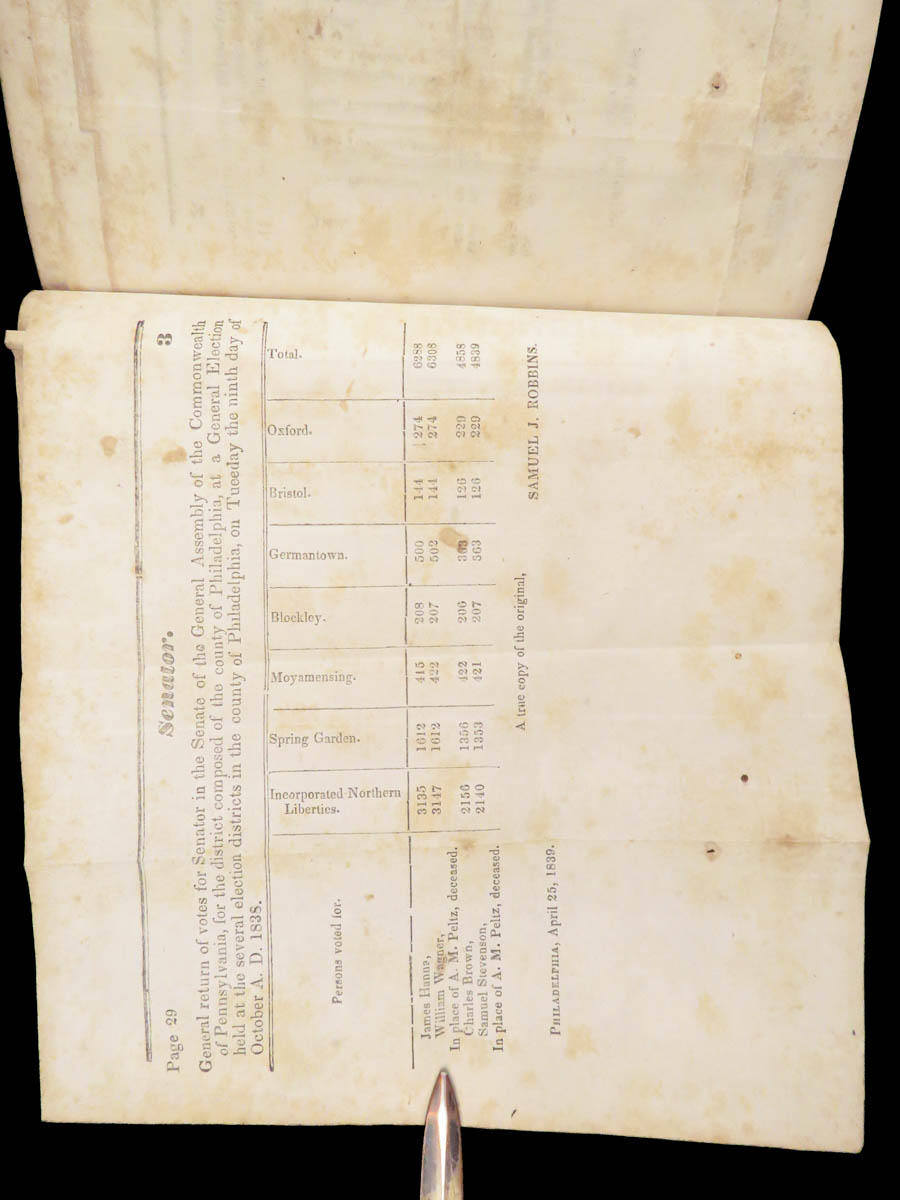 Page 29 Senator. 3
General return of votes for Senator in the Senate of the General Assembly of the Commonwealth
of Pennsylvania, for the district composed of the county of Philadelphia, at a General Election
held at the several election districts in the county of Philadelphia, on Tueeday the ninth day of
October A. D. 1838.
Persons voted for. Incorporated Northern Liberties. Spring Garden. Moyamensing. Blockley. Germantown. Bristol. Oxford. Total.
James Hanna, 3135 1612 415 208 500 144 274 6288
William Wagner, 3147 1612 422 207 502 144 274 6308
In place of A. M. Peltz, deceased.
Charles Brown, 2156 1356 422 206 363 126 229 4858
Samuel Stevenson, 2140 1353 421 207 363 126 229 4839
In place of A. M. Peltz, deceased.
A true copy of the original,
SAMUEL J. ROBBINS.
PHILADELPHIA, April 25, 1839.